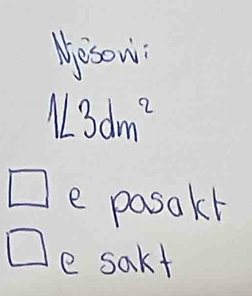 Njësoni:
1L 3dm²
☐ e pasakt
☐ e sakt